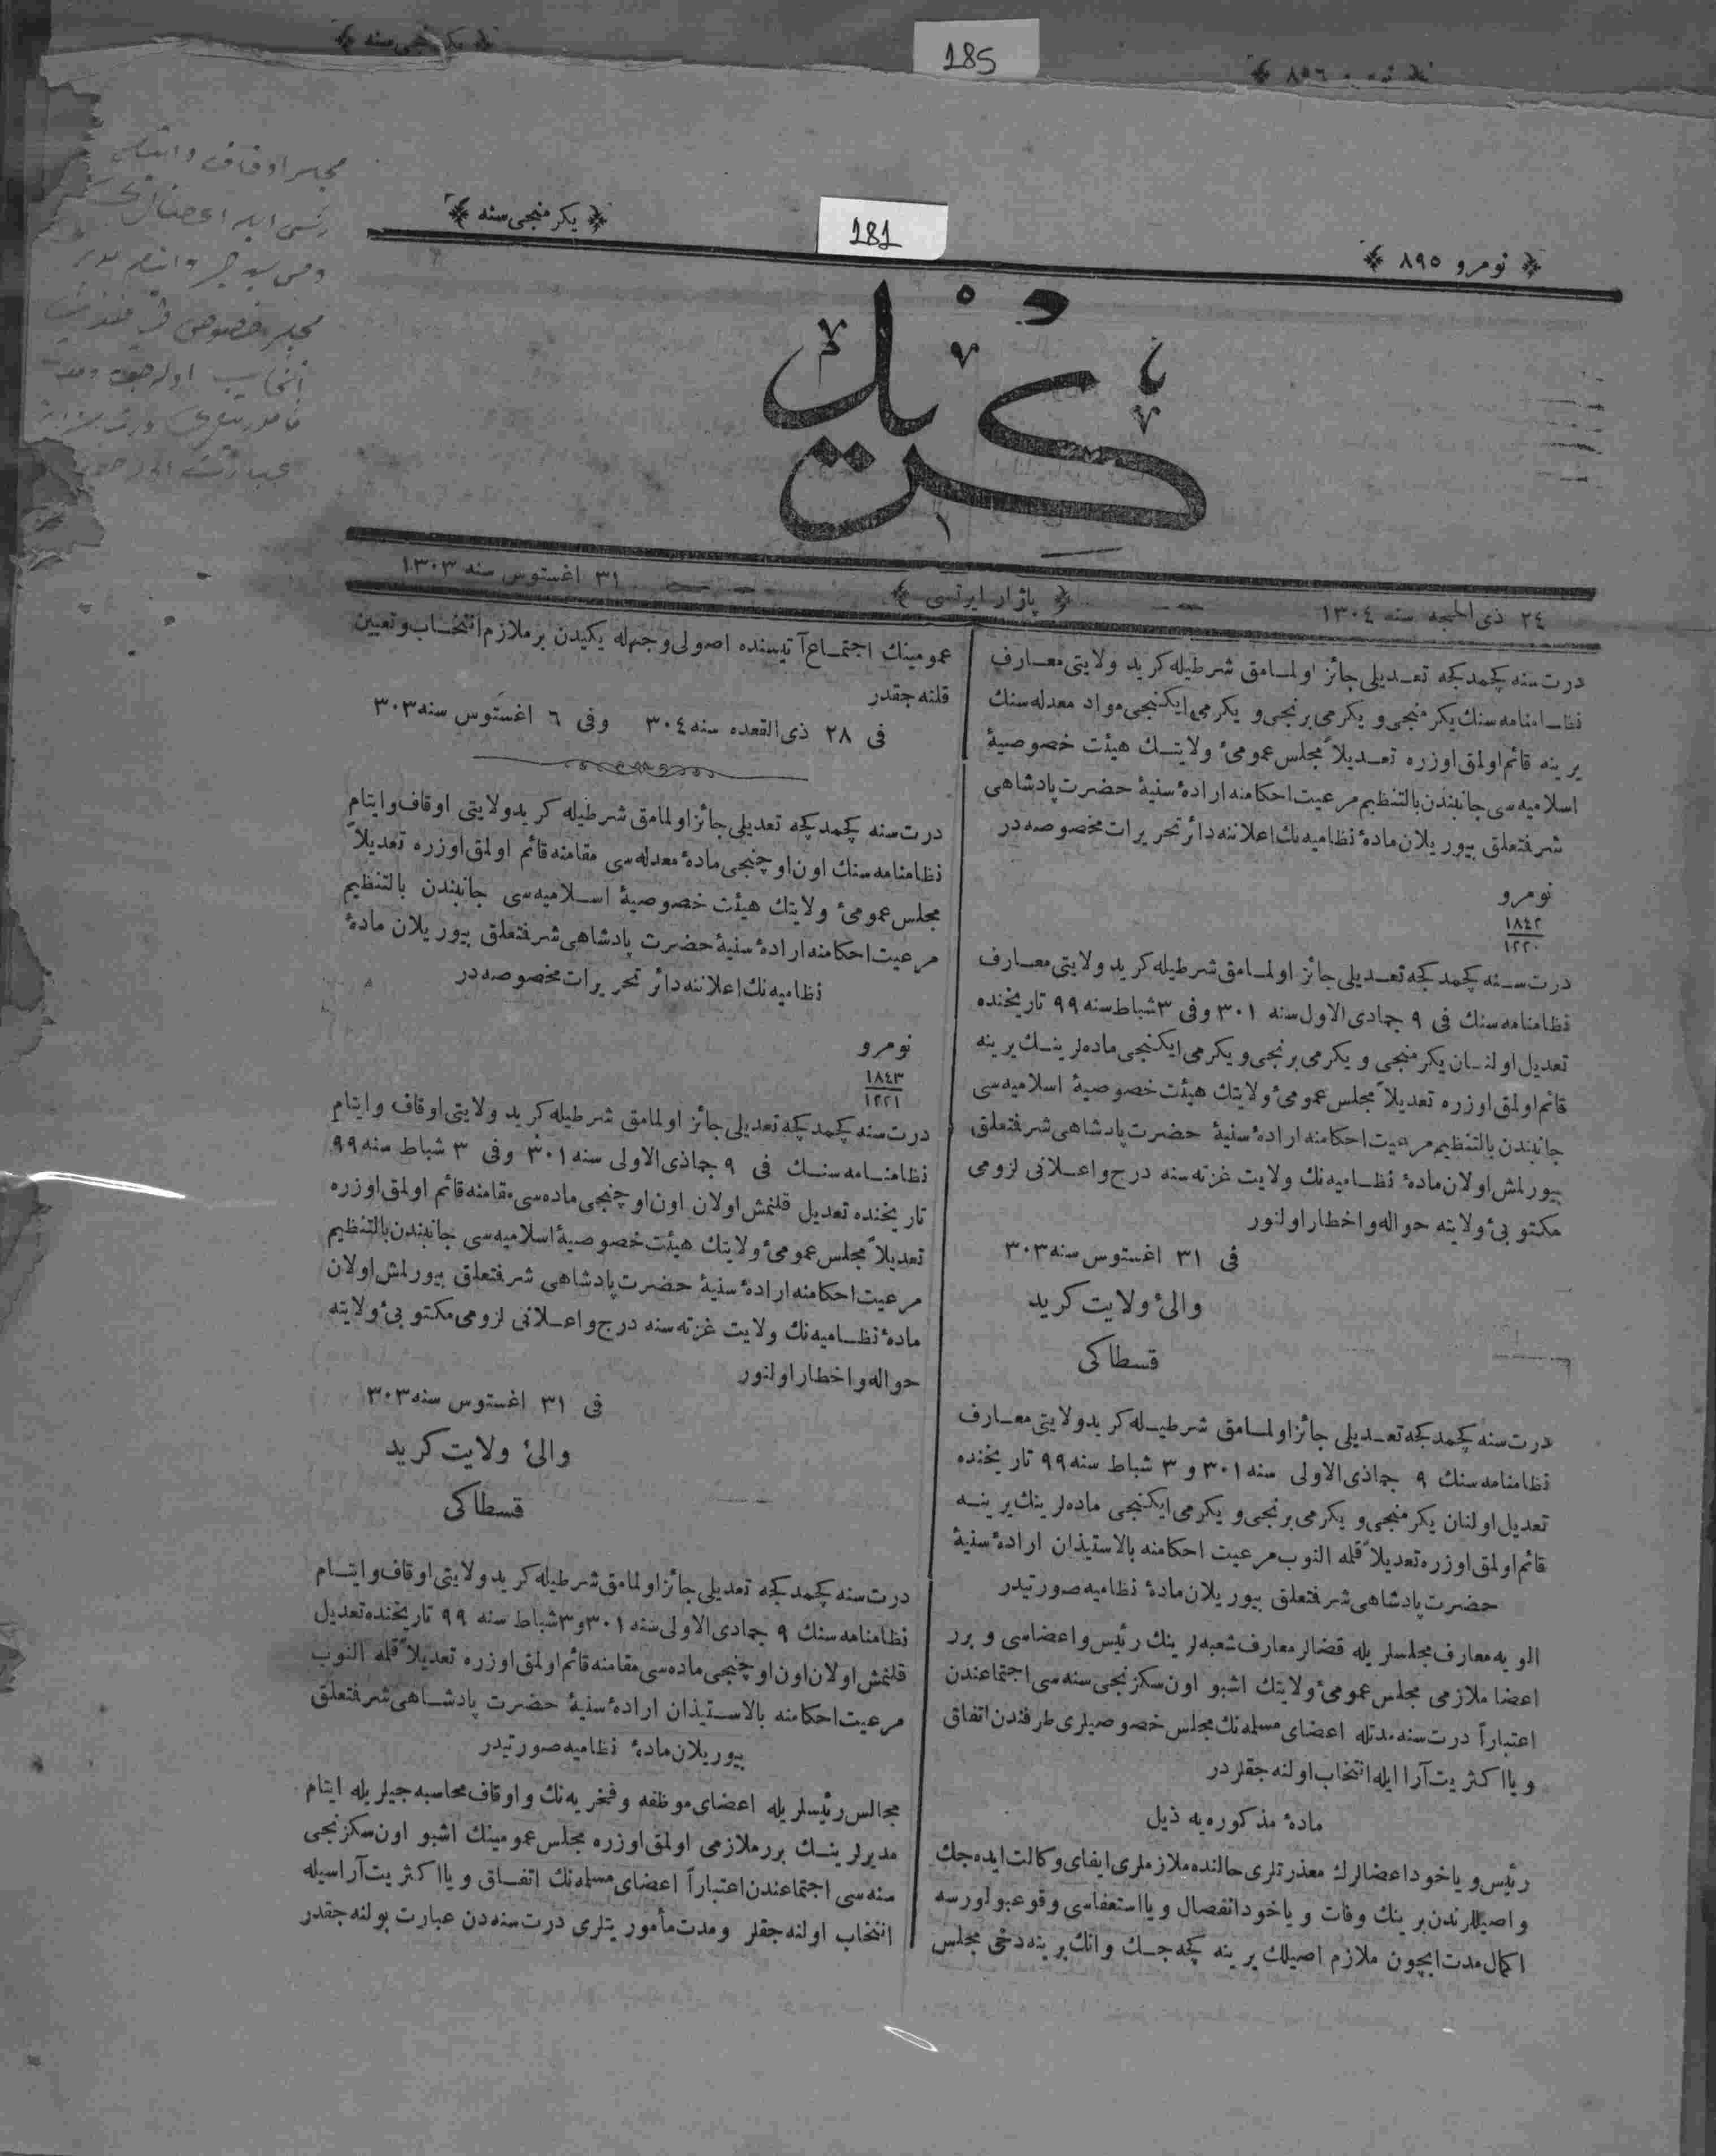 185
﴿ نومرو ٨٩٥ ﴾
181
﴿ یکرمنجی سنه ﴾
كرید
٢٤ ذی الحجه سنه ١٣٠٤
﴿ پازار ایرتسی ﴾
٣١ اغستوس سنه ١٣٠٣
درت سنه کچمدکجه تعدیلی جائز اولمامق شرطیله کرید ولایتی معارف
نظامنامه سنك یکرمنجی و یکرمی برنجی و یکرمی ایکنجی مواد معدله سنك
یرینه قائم اولمق اوزره تعدیلاً مجلس عمومیٔ ولایتك هیئت خصوصیهٔ
اسلامیه سی جانبندن بالتنظیم مرعیت احکامنه ارادهٔ سنیهٔ حضرت پادشاهی
شرفتعلق بیوریلان مادهٔ نظامیه نك اعلاننه دائر تحریرات مخصوصه در
نومرو
١٨٤٢
١٢٢٠
درت سنه کچمدکجه تعدیلی جائز اولمامق شرطیله کرید ولایتی معارف
نظامنامه سنك فی ٩ جمادی الاول سنه ٣٠١ وفی ٣ شباط سنه ٩٩ تاریخنده
تعدیل اولنان یکرمنجی و یکرمی برنجی و یکرمی ایکنجی ماده لرینك یرینه
قائم اولمق اوزره تعدیلاً مجلس عمومیٔ ولایتك هیئت خصوصیهٔ اسلامیه سی
جانبندن بالتنظیم مرعیت احکامنه ارادهٔ سنیهٔ حضرت پادشاهی شرفتعلق
بیورلمش اولان مادهٔ نظامیه نك ولایت غزته سنه درج و اعلانی لزومی
مکتوبیٔ ولایته حواله و اخطار اولنور
فی ٣١ اغستوس سنه ٣٠٣
والیٔ ولایت کرید
قسطاکی
درت سنه کچمدکجه تعدیلی جائز اولمامق شرطیله کرید ولایتی معارف
نظامنامه سنك ٩ جماذی الاولی سنه ٣٠١ و ٣ شباط سنه ٩٩ تاریخنده
تعدیل اولنان یکرمنجی و یکرمی برنجی و یکرمی ایکنجی ماده لرینك یرینه
قائم اولمق اوزره تعدیلاً قلمه النوب مرعیت احکامنه بالاستیذان ارادهٔ سنیهٔ
حضرت پادشاهی شرفتعلق بیوریلان مادهٔ نظامیه صورتیدر
الویه معارف مجلسلریله قضالر معارف شعبه لرینك رئیس و اعضاسی و برر
اعضا ملازمی مجلس عمومیٔ ولایتك اشبو اون سکزنجی سنه سی اجتماعندن
اعتباراً درت سنه مدتله اعضای مسلمه نك مجلس خصوصیلری طرفندن اتفاق
و یا اکثریت آرا ایله انتخاب اولنه جقلردر
مادهٔ مذکوره یه ذیل
رئیس و یاخود اعضالرك معذرتلری حالنده ملازملری ایفای وکالت ایده جك
و اصیللرندن برینك وفات و یاخود انفصال و یا استعفاسی وقوعبولورسه
اکمال مدت ایچون ملازم اصیلك یرینه کچه جك و انك یرینه دخی مجلس
عمومینك اجتماع آتیسنده اصولی وجهله یکیدن بر ملازم انتخاب و تعیین
قلنه جقدر
فی ٢٨ ذی القعده سنه ٣٠٤ وفی ٦ اغستوس سنه ٣٠٣
درت سنه کچمدکجه تعدیلی جائز اولمامق شرطیله کرید ولایتی اوقاف و ایتام
نظامنامه سنك اون اوچنجی مادهٔ معدله سی مقامنه قائم اولمق اوزره تعدیلاً
مجلس عمومیٔ ولایتك هیئت خصوصیهٔ اسلامیه سی جانبندن بالتنظیم
مرعیت احکامنه ارادهٔ سنیهٔ حضرت پادشاهی شرفتعلق بیوریلان مادهٔ
نظامیه نك اعلاننه دائر تحریرات مخصوصه در
نومرو
١٨٤٣
١٢٢١
درت سنه کچمدکجه تعدیلی جائز اولمامق شرطیله کرید ولایتی اوقاف و ایتام
نظامنامه سنك فی ٩ جماذی الاولی سنه ٣٠١ وفی ٣ شباط سنه ٩٩
تاریخنده تعدیل قلنمش اولان اون اوچنجی ماده سی مقامنه قائم اولمق اوزره
تعدیلاً مجلس عمومیٔ ولایتك هیئت خصوصیهٔ اسلامیه سی جانبندن بالتنظیم
مرعیت احکامنه ارادهٔ سنیهٔ حضرت پادشاهی شرفتعلق بیورلمش اولان
مادهٔ نظامیه نك ولایت غزته سنه درج و اعلانی لزومی مکتوبیٔ ولایته
حواله و اخطار اولنور
فی ٣١ اغستوس سنه ٣٠٣
والیٔ ولایت کرید
قسطاکی
درت سنه کچمدکجه تعدیلی جائز اولمامق شرطیله کرید ولایتی اوقاف و ایتام
نظامنامه سنك ٩ جمادی الاولی سنه ٣٠١ و ٣ شباط سنه ٩٩ تاریخنده تعدیل
قلنمش اولان اون اوچنجی ماده سی مقامنه قائم اولمق اوزره تعدیلاً قلمه النوب
مرعیت احکامنه بالاستیذان ارادهٔ سنیهٔ حضرت پادشاهی شرفتعلق
بیوریلان مادهٔ نظامیه صورتیدر
مجالس رئیسلریله اعضای موظفه و فخریه نك و اوقاف محاسبه جیلریله ایتام
مدیرلرینك برر ملازمی اولمق اوزره مجلس عمومینك اشبو اون سکزنجی
سنه سی اجتماعندن اعتباراً اعضای مسلمه نك اتفاق و یا اکثریت آراسیله
انتخاب اولنه جقلر و مدت مأموریتلری درت سنه دن عبارت بولنه جقدر